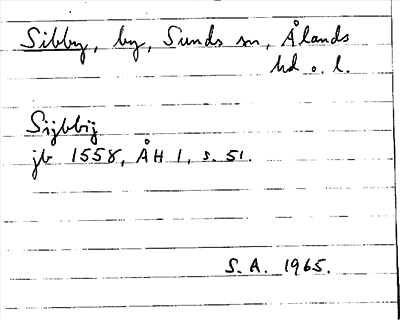 Sibby, by, Sunds sn, Ålands
hd o. l.
Sijbbij
jb 1558, ÅH 1, s. 51.
S. A. 1965.